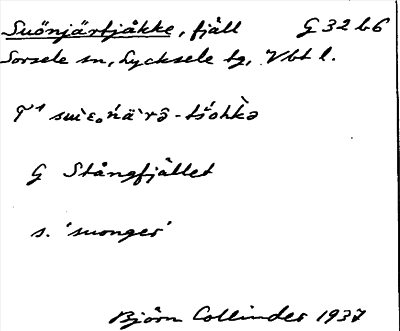 Suönjärtjåkke, fjäll G 32 b6
Sorsele sn, Lycksele tg, Vbt l.
G Stångfjället
s. 'suonger'
Björn Collinder 1937